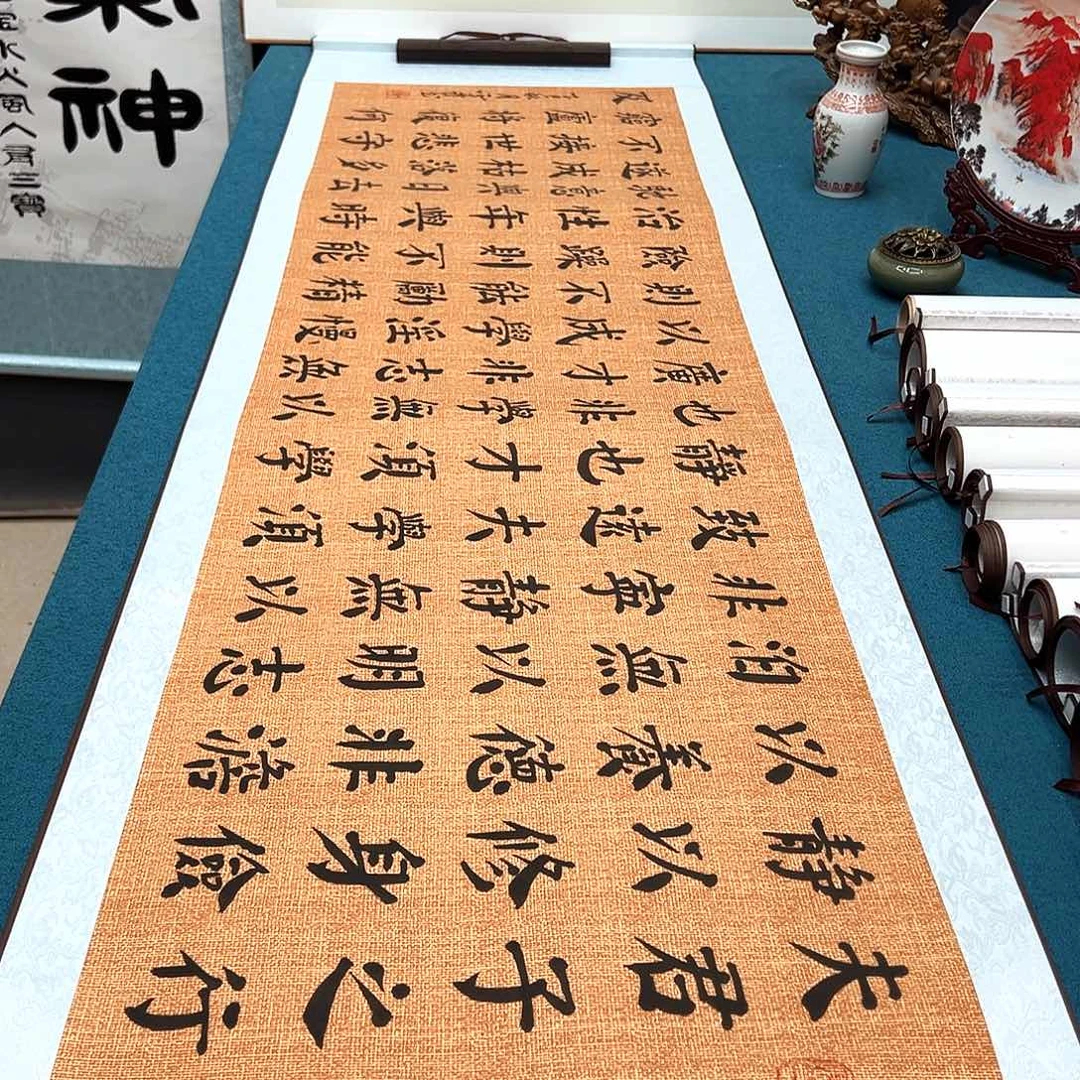 夫君子之行
靜以修身儉
以養德非澹
泊無以明志
非寧靜無以
致遠夫學須
靜也才須學
也非學無以
廣才非志無
以成學淫慢
則不能勵精
險躁則不能
治性年與時
馳意與日去
遂成枯落多
不接世悲守
窮廬將復何
及
氣神
寶水火風人有三寶